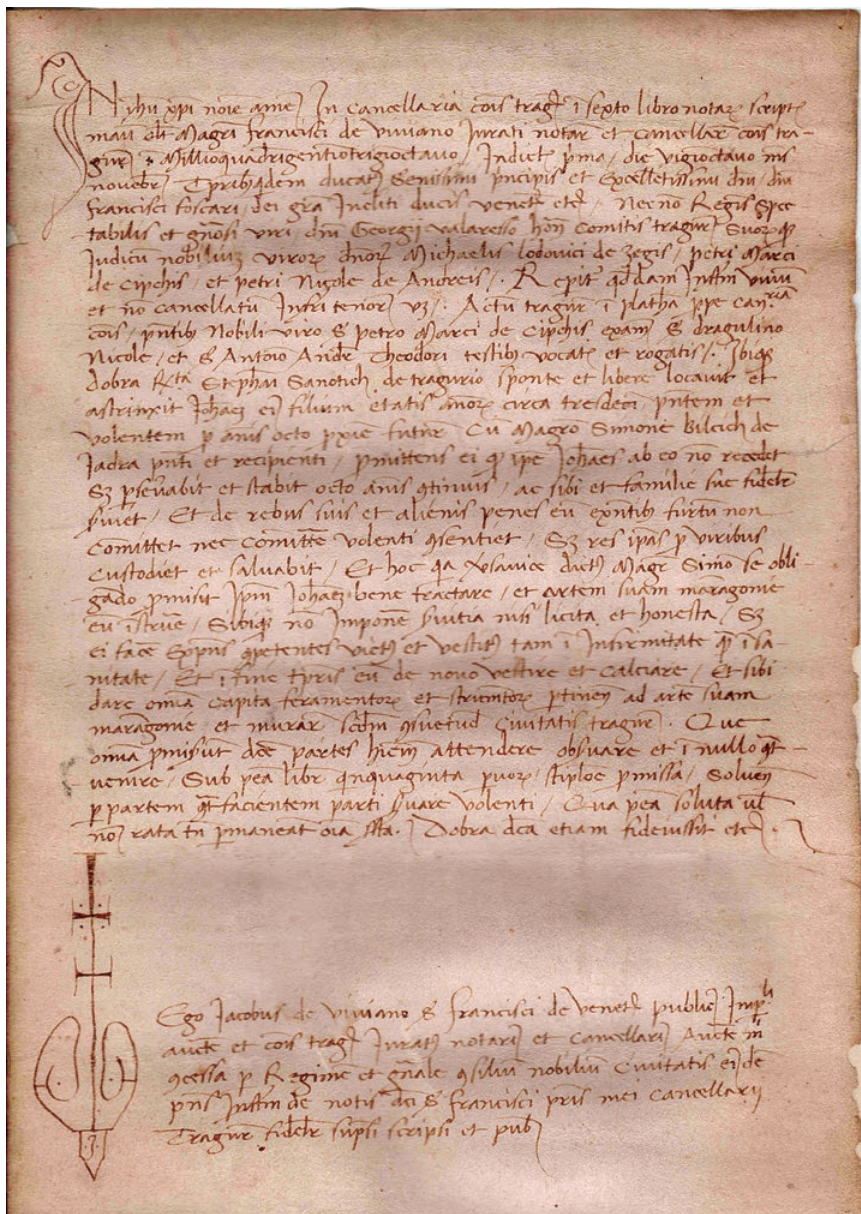 N Jhu xpi noie ame) In Cancellaria cois tragr i sexto libro notar scripte
manu olt Magri francisci de viviano Jurati notar et Cancellar cois tra-
gur Millioquadrigentiotrigioctavo, Indict pma, die vigioctavo ms
novebr Tpribqdem ducat Senissimi pncipis et Excelletissimi dni dni
francisci foscari, dei gra Incliti ducis venet etc, Necno Regis Spec
tabilis et gnosi viri, dni Georgij valaresso hon Comitis tragur Suorq
Judicu nobiliu viror dnor Michaelis lodovici de zegis, petri Marci
de Cipchis, et petri Nicole de Andreis. Repit qddam Instm vivu
et no cancellatu Infri tenor vz. Actu tragur i platha ppe canriam
cois, pntib Nobili viro S petro Marci de Cipchis exam S dragulino
Nicole, et S Antoio Andr Theodori testib vocat et rogatis. Ibiq
dobra rcta Stephani Sanotich de tragurio sponte et libere locavit et
astrinxit Johaez ej filium etatis anor circa tresdeci pntem et
volentem p anis octo pxie futur Cu Magro Simone Bilcich de
Jadra pnti et recipienti, pmittens ei q ipe Johaes ab eo no recedet
Sz psevabit et stabit octo anis qtinuis, ac sibi et familie sue fidelr
sviet, Et de rebus suis et alienis penes eu exntib furtu non
Comittet nec Comitte volenti qsentiet, Sz res ipas p viribus
Custodiet et salvabit, Et hoc qa vsavice dict Magr Simo se obli-
gado pmisit ipm Johaez bene tractare, et artem suam maragonie
eu istrue, Sibiq no Impone svitia nisi licita et honesta, Sz
ei face Expns qpetentes vict et vestit tam i Infirmitate q i sa-
nitate, Et i fine tpris eu de novo vestire et Calciare, Et sibi
dare omia Capita feramentor et strumtor ptinen ad arte suam
maragonie et murar scdm qsuetud Civitatis tragur. Que
omia pmisut dce partes hiem attendere obsvare et i nullo qt-
venire, Sub pea libr qnquaginta pvor, stiploe pmissa, Solven
p partem qt facientem parti svare volenti, Qua pea soluta ul
no rata tn pmaneat oia ssta. Dobra dca etiam fideiussit etc.
Ego Jacobus de viviano S francisci de venet public Impli
aucte et cois trag Jurat notari et Cancellari Aucte m
qcessa p Regime et gnale qsiliu nobiliu Civitatis eide
pns Instm de notis dci S francisci pris mei Cancellarij
Tragur fidelr supsi scripsi et pub